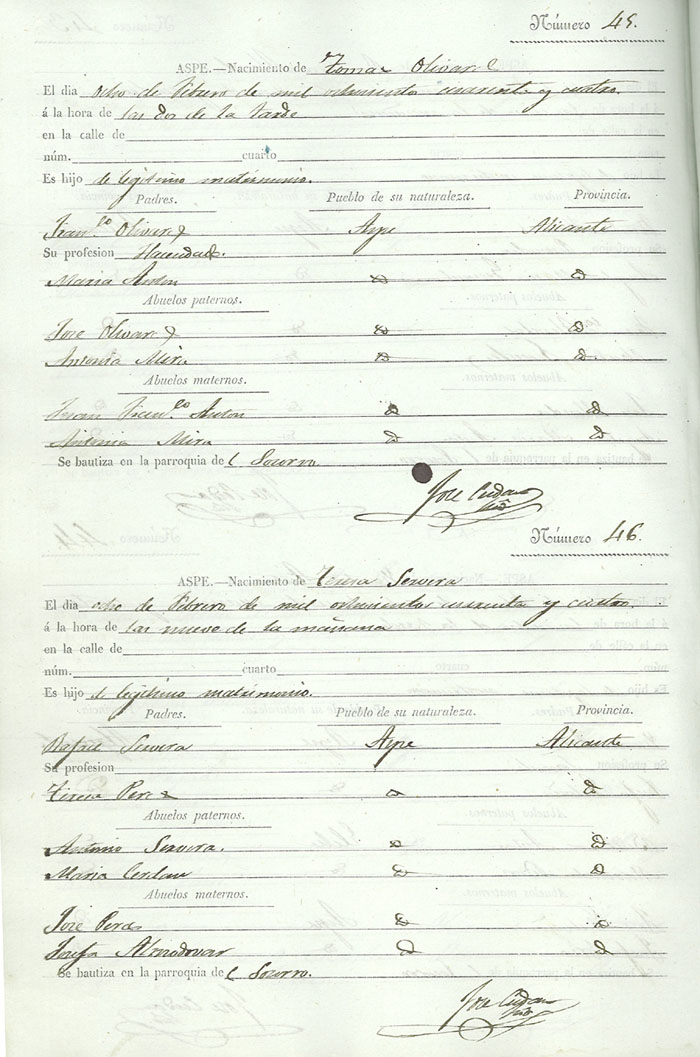 Número 45.
ASPE.—Nacimiento de Tomas Olivares
El dia ocho de Febrero de mil ochocientos cuarenta y cuatro.
á la hora de las dos de la tarde
en la calle de
núm. cuarto
Es hijo de legitimo matrimonio.
Padres. Pueblo de su naturaleza. Provincia.
Fran.co Olivares Aspe Alicante
Su profesion Hacendado.
Maria Anton D D
Abuelos paternos.
Jose Olivares D D
Antonia Mira D D
Abuelos maternos.
Juan Fran.co Anton D D
Antonia Mira D D
Se bautiza en la parroquia del Socorro.
Jose Cerdan
Número 46.
ASPE.—Nacimiento de Teresa Servera
El dia ocho de Febrero de mil ochocientos cuarenta y cuatro.
á la hora de las nueve de la mañana
en la calle de
núm. cuarto
Es hijo de legitimo matrimonio.
Padres. Pueblo de su naturaleza. Provincia.
Rafael Servera Aspe Alicante
Su profesion
Teresa Perez D D
Abuelos paternos.
Antonio Servera. D D
Maria Cerdan D D
Abuelos maternos.
José Perez D D
Josefa Almodovar D D
Se bautiza en la parroquia del Socorro.
Jose Cerdan